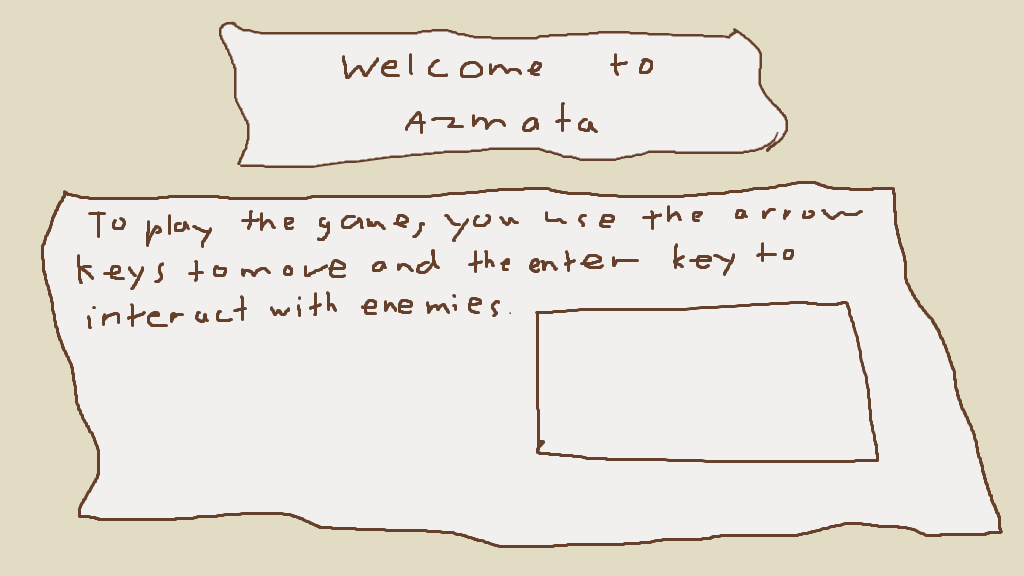 Welcome to
Azmata
To play the game, you use the arrow
keys to move and the enter key to
interact with enemies.